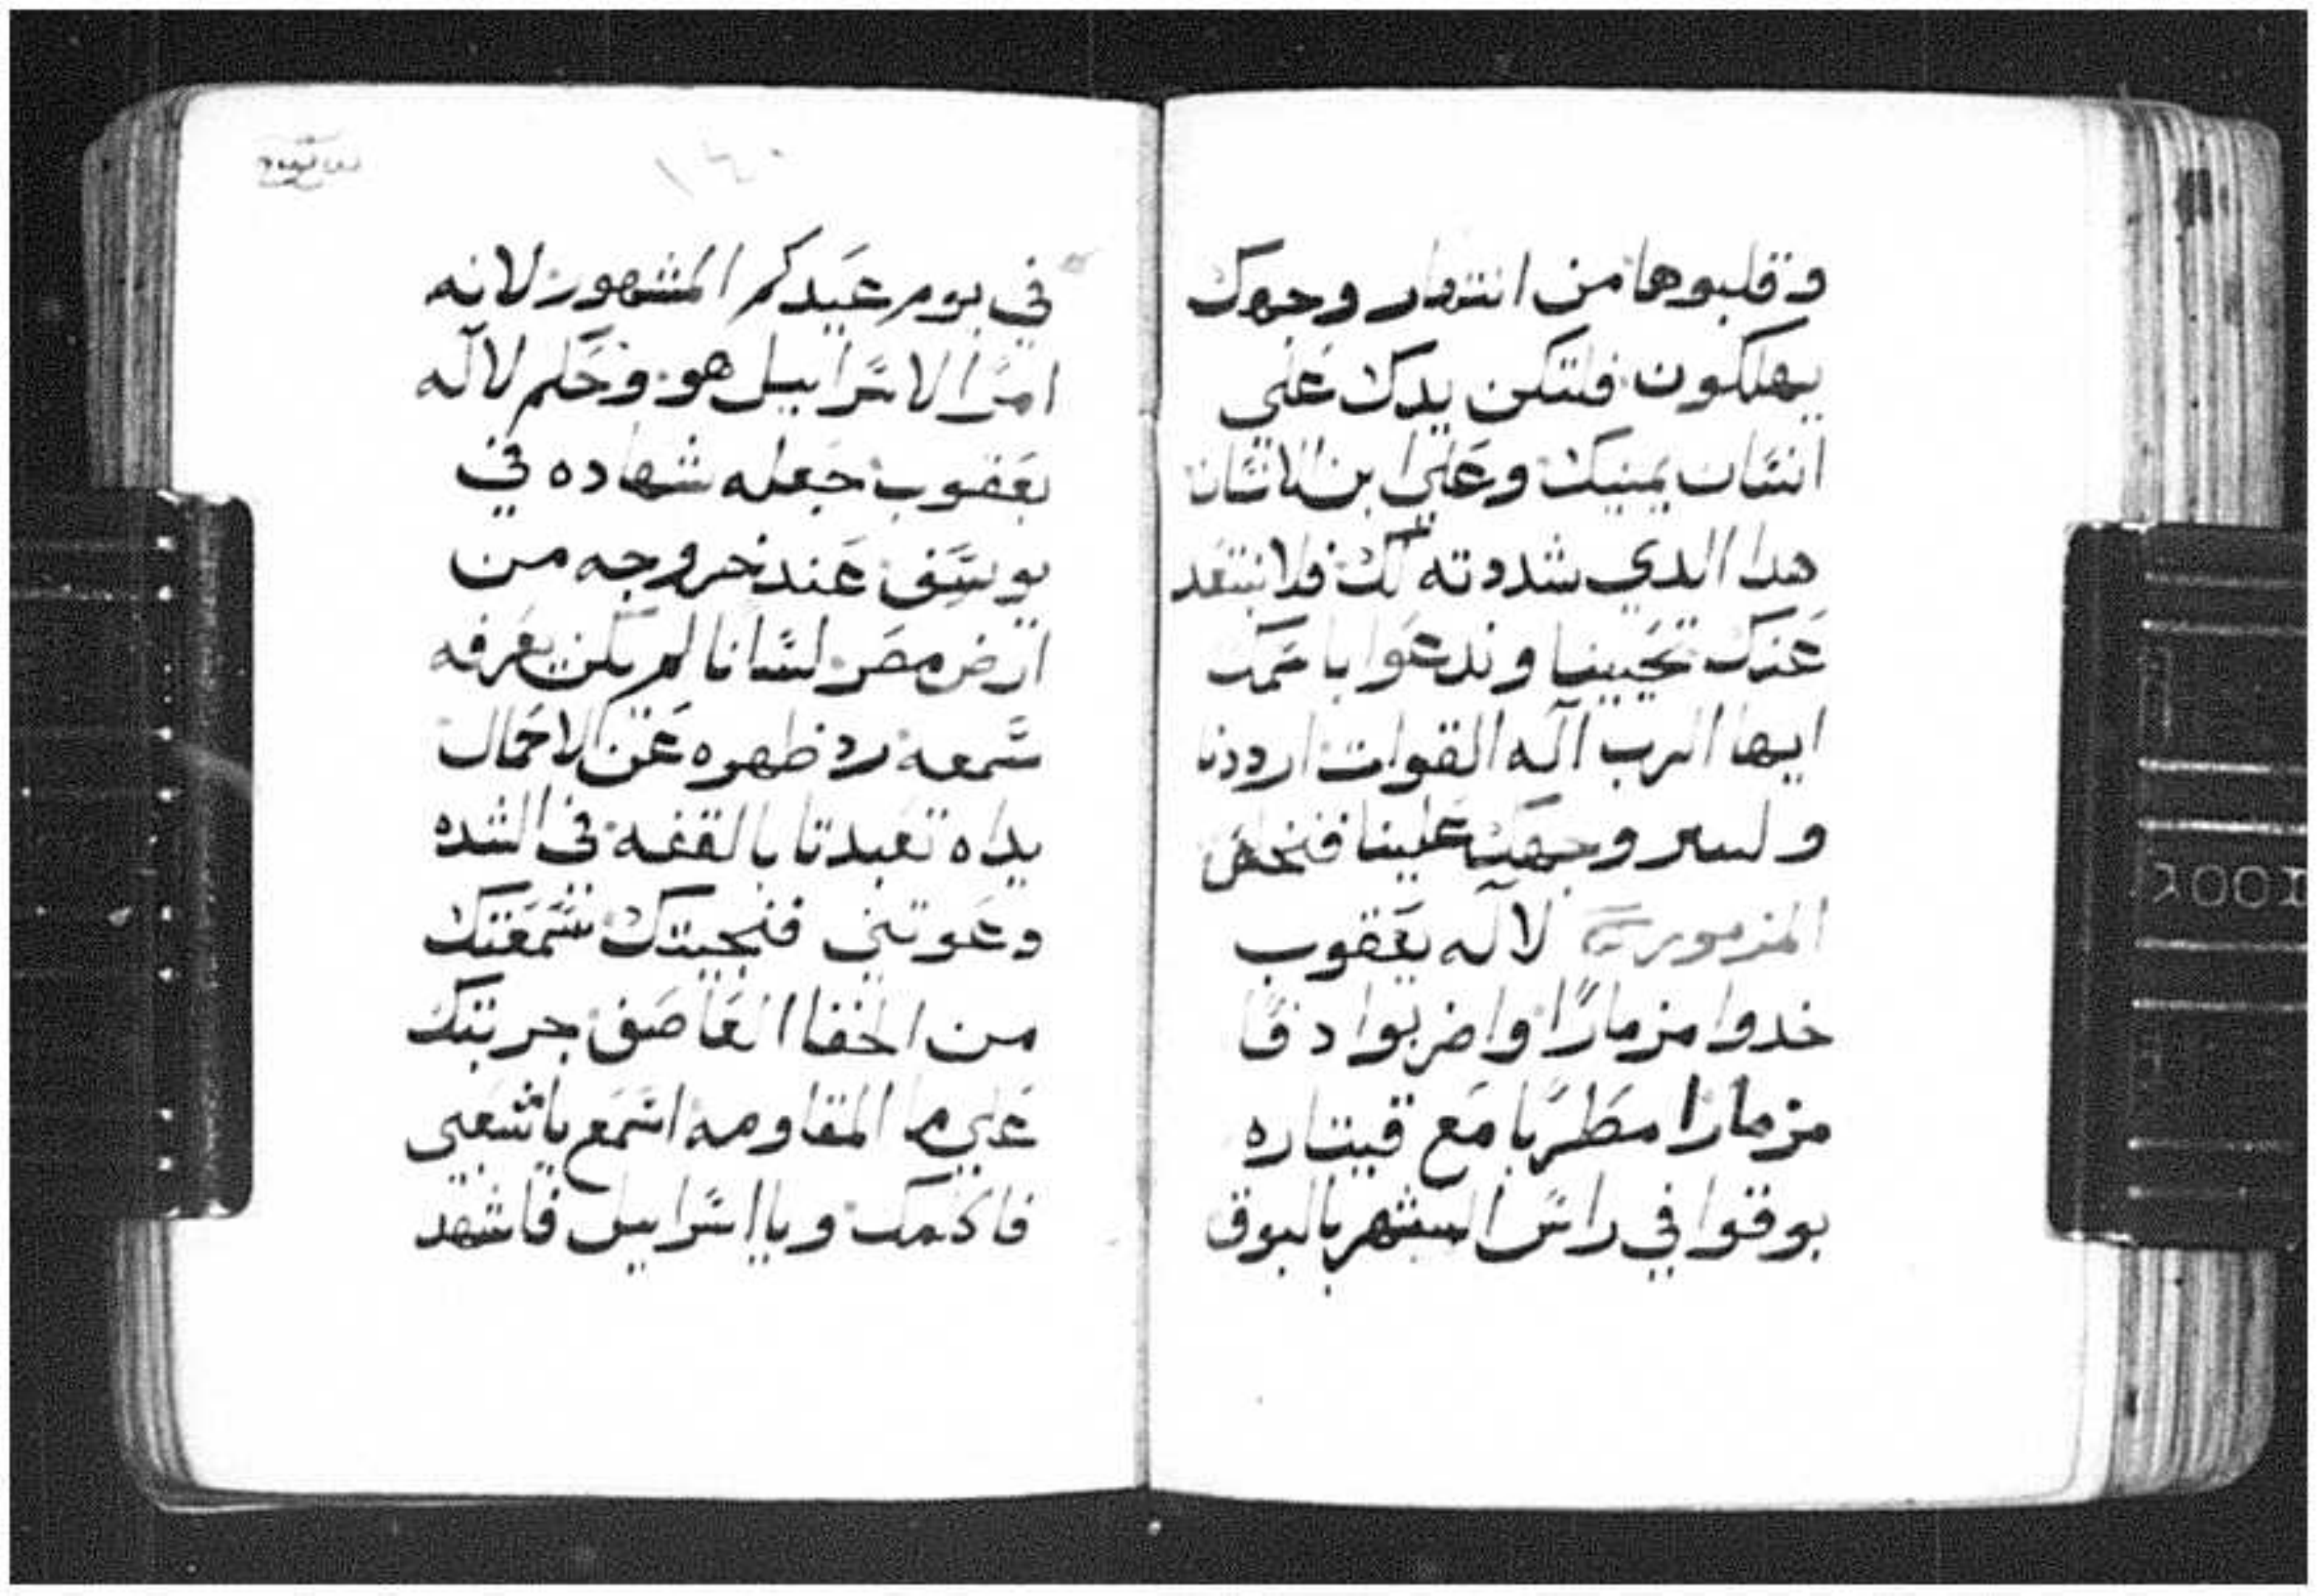 وقلبوها من انتهار وجهك
يهلكون فلتكن يدك على
انسان يمينك وعلي ابن الانسان
هدا الدي شددته لك فلا نبتعد
عنك تحيينا وندعوا باسمك
ايها الرب اله القوات ارددنا
ولسر وجهك علينا فنخلص
المزمور لاله يعقوب
خدوا مزمارا واضربوا دفا
مزمارا مطربا مع قيتاره
بوقوا في راس الشهر بالبوق
١٤٠
في يوم عيدكم المشهور لانه
امرا لاسراييل هو وحكم لاله
يعقوب جعله شهاده في
يوسف عند خروجه من
ارض مصر لسانا لم يكن يعرفه
سمعه رد ظهره عن الاحمال
يداه تعبدتا بالقفه في الشده
دعوتني فنجيتك سمعتك
من الخفا العاصف جربتك
علي ما المقاومه اسمع ياشعبي
فاكلمك ويااسراييل فاشهد